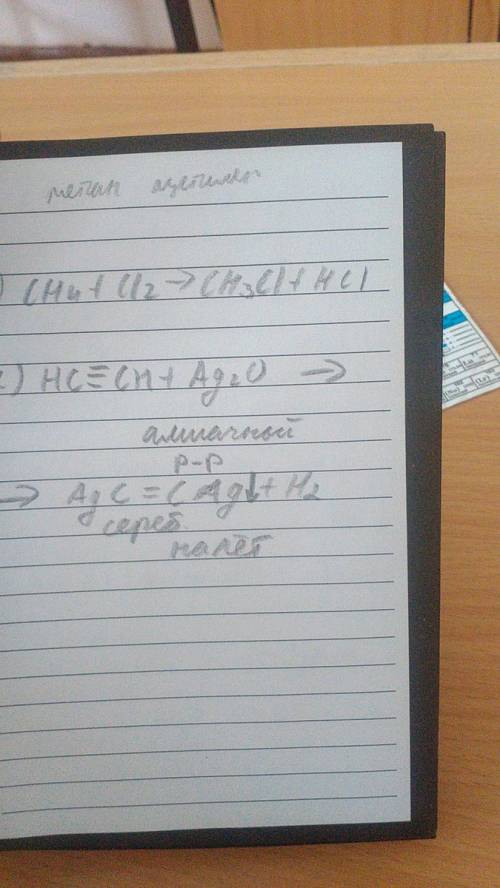 метан ацетилен
) CH4 + Cl2 → CH3Cl + HCl
2) HC≡CH + Ag2O →
аммиачный
р-р
→ AgC = CAg↓ + H2
сереб.
налёт